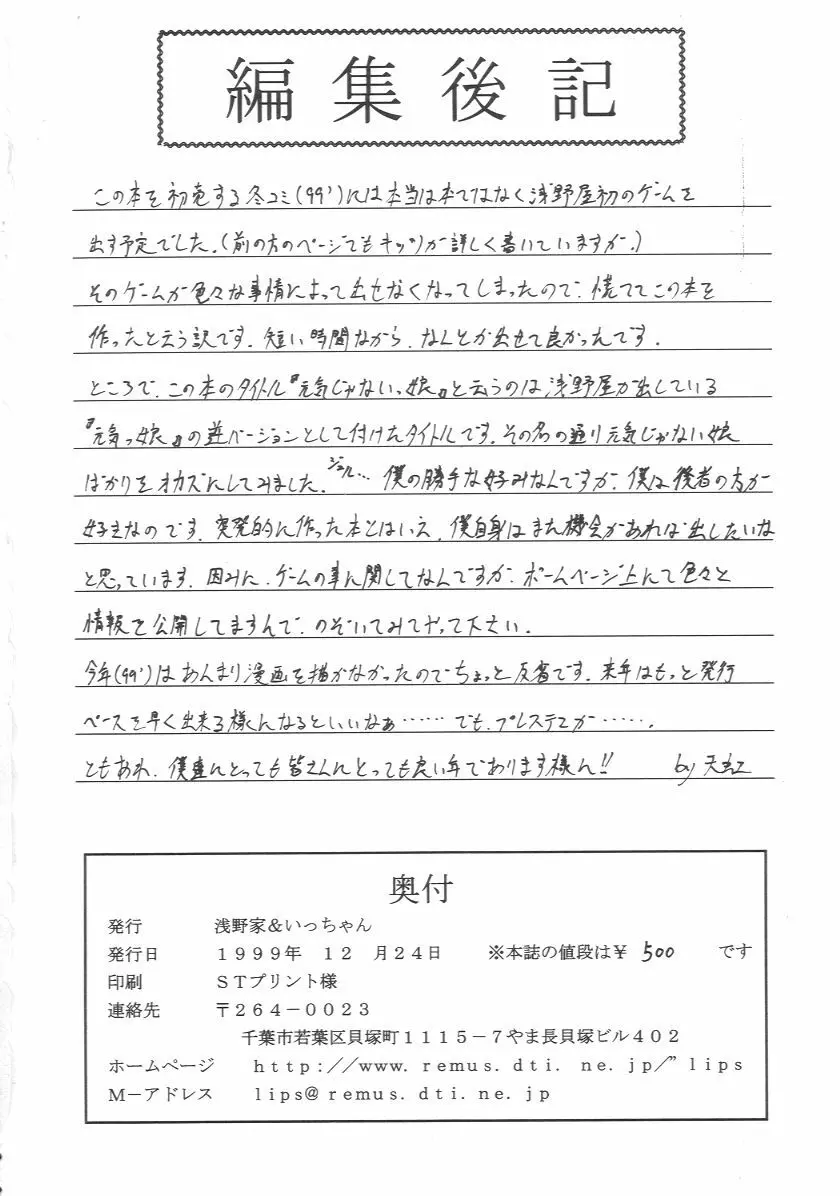 編集後記
この本を初売する冬コミ(99')には本当は本ではなく浅野屋初のゲームを
出す予定でした.(前の方のページでもキップが詳しく書いていますが.)
そのゲームが色々な事情によって出せなくなってしまったので、慌ててこの本を
作ったと云う訳です.短い時間ながら、なんとか出せて良かったです.
ところで、この本のタイトル『元気じゃないっ娘』と云うのは浅野屋が出している
『元気っ娘』の逆バージョンとして付けたタイトルです.その名の通り元気じゃない娘
ばかりをオカズにしてみました. 僕の勝手な好みなんですが、僕は後者の方が
好きなのです.突発的に作った本とはいえ、僕自身はまた機会があれば出したいな
と思っています.因みに、ゲームの事に関してなんですが、ホームページ上にて色々と
情報を公開してますんで、のぞいてみてやって下さい.
今年(99')はあんまり漫画を描かなかったのでちょっと反省です.来年はもっと発行
ペースを早く出来る様になるといいなぁ……でも、プレステ2が…….
ともあれ、僕達にとっても皆さんにとっても良い年であります様に!! by 天虹
奥付
発行 浅野家&いっちゃん
発行日 1999年 12月24日 ※本誌の値段は¥ 500 です
印刷 STプリント様
連絡先 〒264-0023
千葉市若葉区貝塚町1115-7やま長貝塚ビル402
ホームページ http://www.remus.dti.ne.jp/"lips
M-アドレス lips@remus.dti.ne.jp